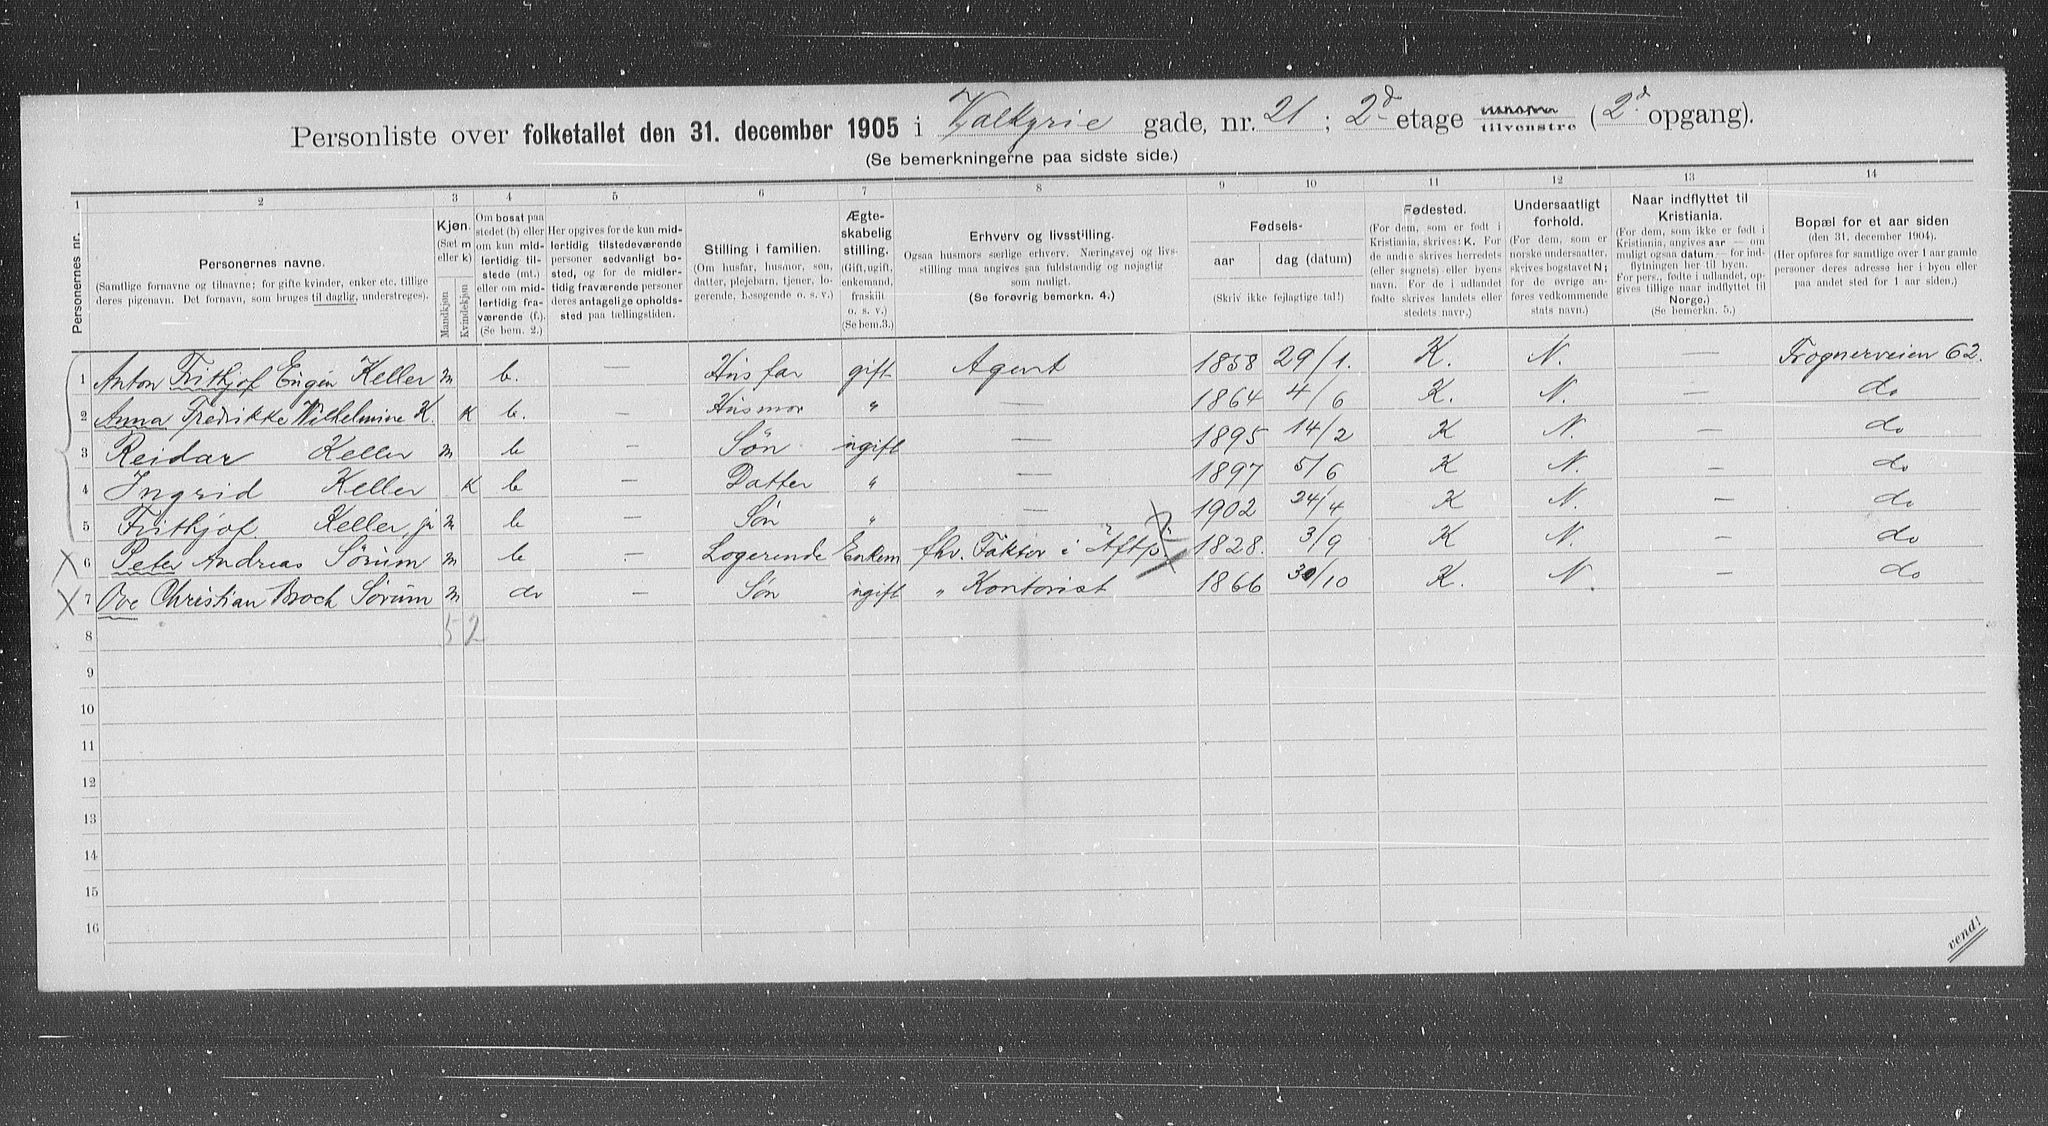 Personliste over folketallet den 31. december 1905 i Valkyrie gade, nr. 21 ; 2d etage tilhøire tilvenstre ( 2d opgang).
(Se bemerkningerne paa sidste side.)
1 2 3 4 5 6 7 8 9 10 11 12 13 14
Personernes nr.
Personernes navne.
(Samtlige fornavne og tilnavne; for gifte kvinder, enker etc. tillige
deres pigenavn. Det fornavn, som bruges til daglig, understreges).
Kjøn.
(Sæt m
eller k)
Mandkjøn
Kvindekjøn
Om bosat paa
stedet (b) eller
om kun mid-
lertidig til-
stede (mt.)
eller om mid-
lertidig fra-
værende (f.).
(Se bem. 2.)
Her opgives for de kun mid-
lertidig tilstedeværende
personer sedvanligt bo-
sted, og for de midler-
tidig fraværende personer
deres antagelige opholds-
sted paa tællingstiden.
Stilling i familien.
(Om husfar, husmor, søn,
datter, plejebarn, tjener, lo-
gerende, besøgende o. s. v.)
Ægte-
skabelig
stilling.
(Gift, ugift,
enkemand,
fraskilt
o. s. v.)
(Se bem. 3.)
Erhverv og livsstilling.
Ogsaa husmors særlige erhverv. Næringsvej og livs-
stilling maa angives saa fuldstændig og nøjagtig
som muligt.
(Se forøvrig bemerkn. 4.)
Fødsels-
aar dag (datum)
(Skriv ikke fejlagtige tal!)
Fødested.
(For dem, som er født i
Kristiania, skrives: K. For
de andre skrives herredets
(eller sognets) eller byens
navn. For de i udlandet
fødte skrives landets eller
stedets navn.)
Undersaatligt
forhold.
(For dem, som er
norske undersaatter,
skrives bogstavet N;
for de øvrige an-
føres vedkommende
stats navn.)
Naar indflyttet til
Kristiania.
(For dem, som ikke er født i
Kristiania, angives aar — om
muligt ogsaa datum — for ind-
flytningen her til byen.
For pers., fødte i udlandet, op-
gives tillige naar indflyttet til
Norge.)
(Se bemerkn. 5.)
Bopæl for et aar siden
(den 31. december 1904).
(Her opføres for samtlige over 1 aar gamle
personer deres adresse her i byen eller
paa andet sted for 1 aar siden.)
1 Anton Frithjof Eugén Keller m b. — Husfar gift Agent 1858 29/1. K. N. — Frognerveien 62.
2 Anna Fredrikke Wilhelmine K. K b. — Husmor " — 1864 4/6 K. N. — do
3 Reidar Keller m b — Søn ugift — 1895 14/2 K N. — do
4 Ingrid Keller K b — Datter " — 1897 5/6 K N. — do
5 Frithjof Keller, jr m b — Søn " — 1902 24/4 K N. — do
X 6 Peter Andreas Sörum m b — Logerende Enkem fhv. Faktor i Aftp. 1828. 3/9 K N. — do
X 7 Ove Christian Broch Sörum m do — Søn ugift " Kontorist 1866 30/10 K. N. — do
8 5 2
9
10
11
12
13
14
15
16
vend!